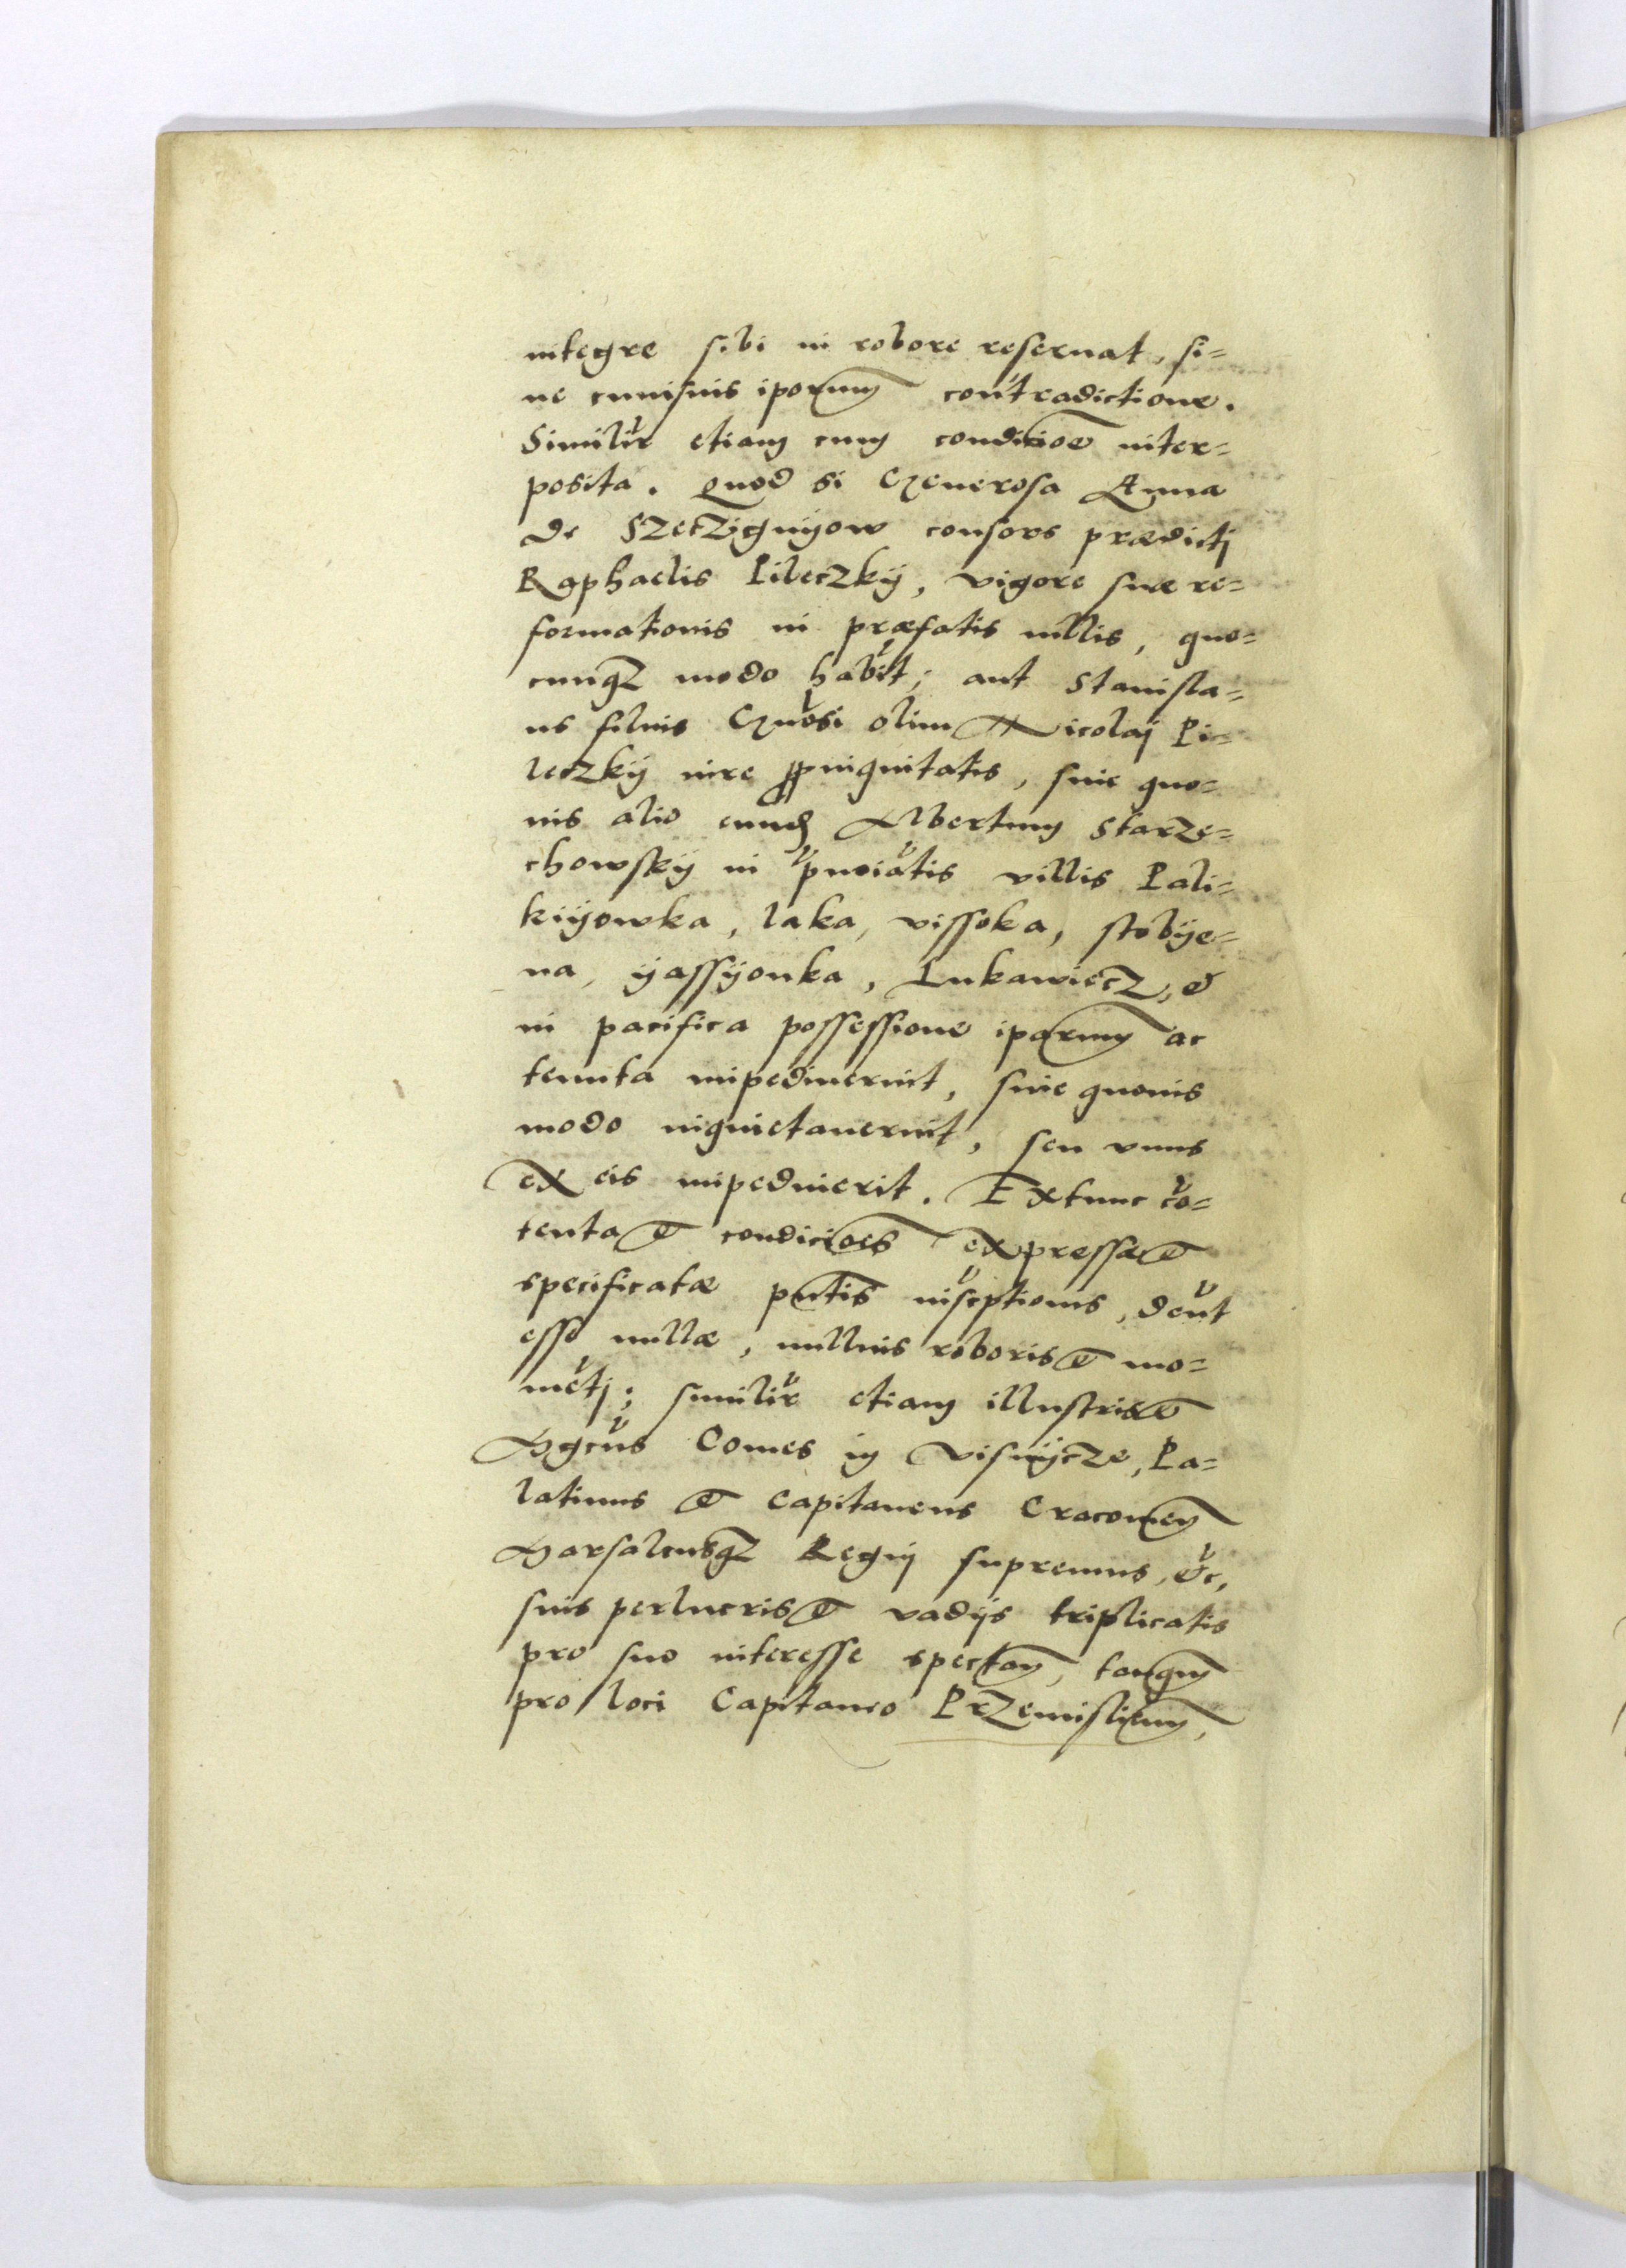 integre sibi in robore reseruat, si=
ne cuiusuis iporum contradictione.
Similir etiam cum condicioe inter=
posita. Quod si Generosa Anna
de Szeczÿgnÿow consors prædictj
Raphaelis Pileczkÿ, vigore suæ re=
formationis in præfatis uillis, quo=
cunqz modo habit; aut Stanisla=
us filius Gnosi olim Nicolaj Pi=
leczkÿ iure ppinquitatis, siue quo=
uis alio eund Albertum Starze=
chowskÿ in pnoiatis villis Pali=
kiÿowka, laka, vissoka, stobÿe=
na, ÿassÿonka, Lukawiecz, &
in pacifica possessione iparum ac
tenuta impediuerint, siue quouis
modo inquietauerint, seu vnus
ex eis impediuierit. Extunc co=
tenta & condicioes expressæ &
specificatæ pntis inscptionis, dent
esse nullæ, nullius roboris & mo=
metj; similir etiam illustris &
Mgcus Comes in Visnÿcze, Pa=
latinus & Capitaneus Cracouien
Marsalcusqz Regnj supremus, &c,
suis perlucris & vadijs triplicatis
pro suo interesse spectan, tanqm
pro loci Capitaneo Przemislienm,